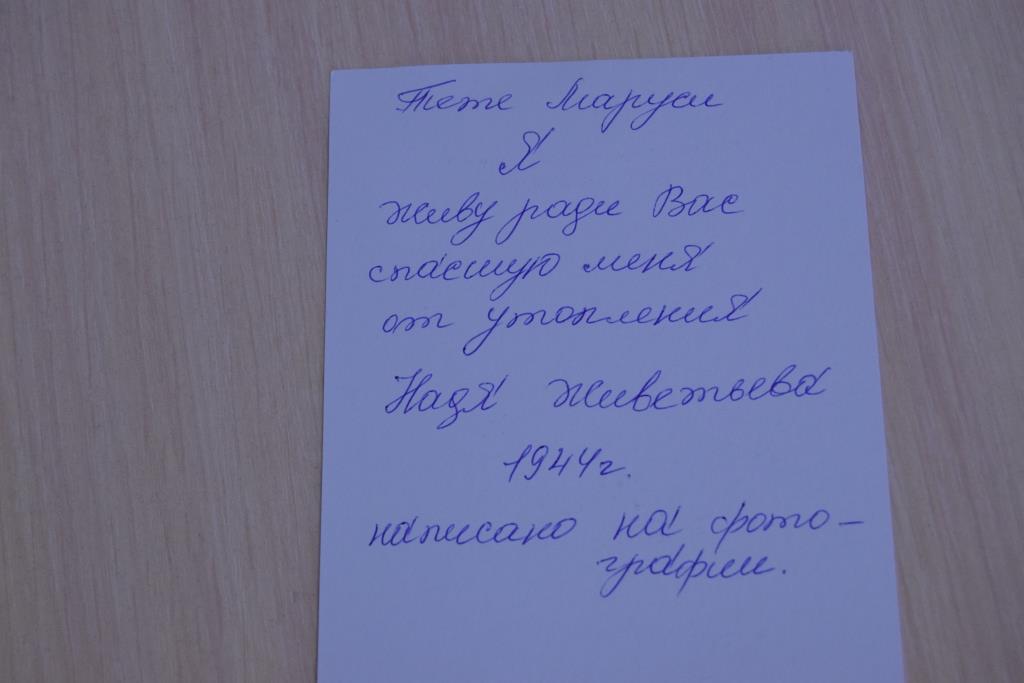 Теже Маруси
Я
живу ради Вас
спасшую меня
от утопления
Надя Живетьева
1944г.
написано на фото-
графии.